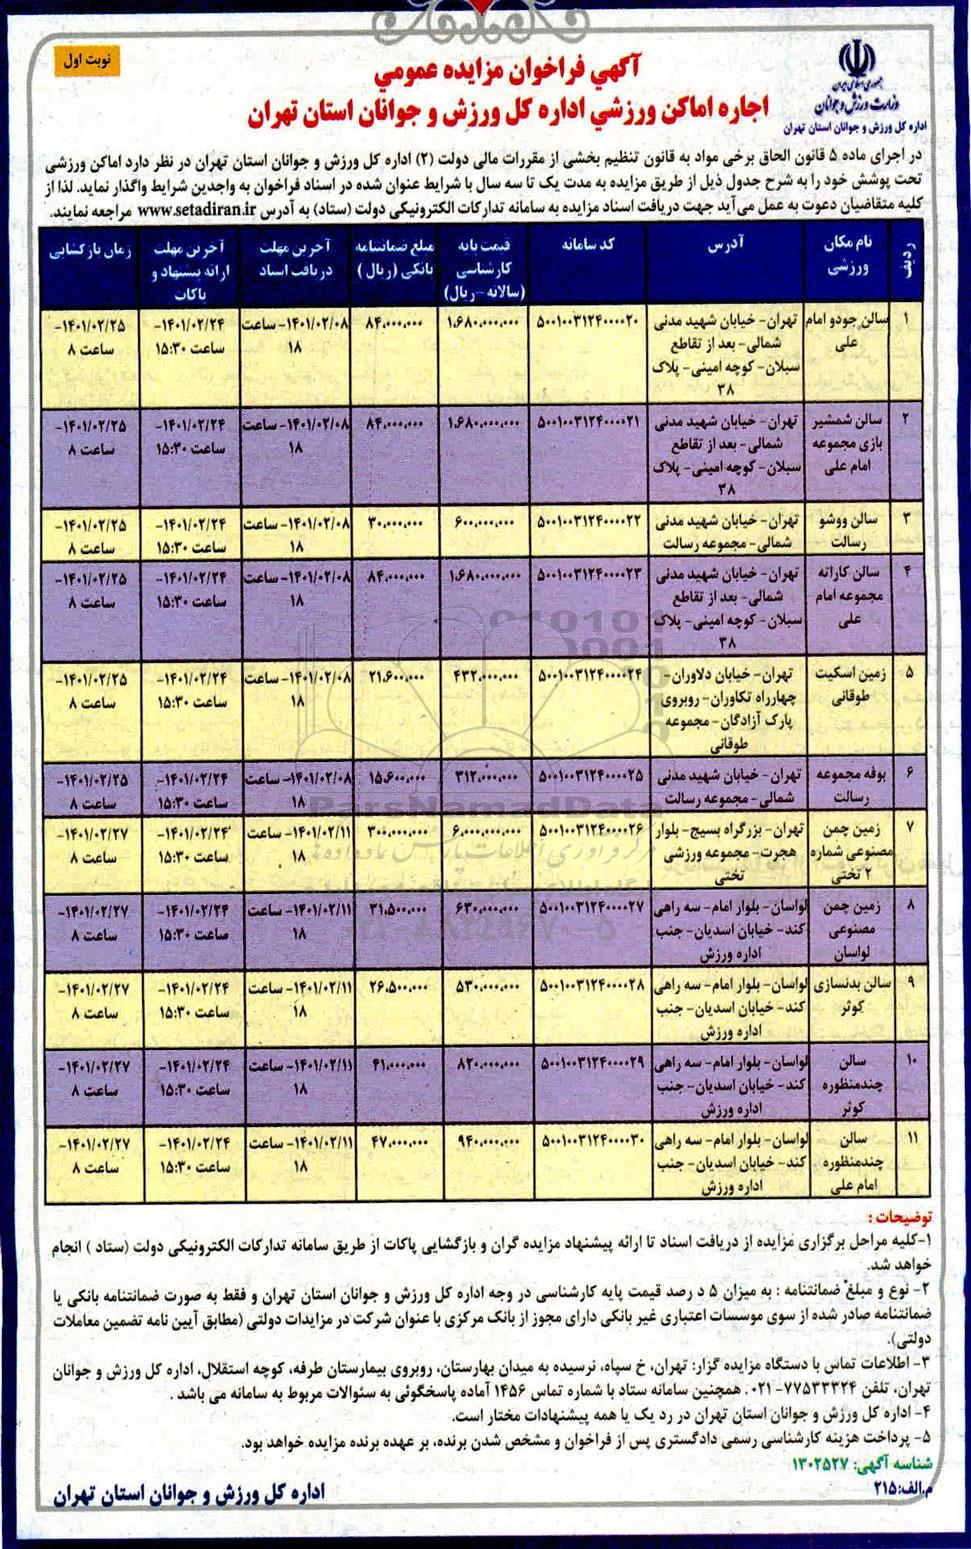 نوبت اول
جمهوری اسلامی ایران
وزارت ورزش و جوانان
اداره کل ورزش و جوانان استان تهران
آگهي فراخوان مزايده عمومي
اجاره اماکن ورزشي اداره کل ورزش و جوانان استان تهران
در اجرای ماده ۵ قانون الحاق برخی مواد به قانون تنظیم بخشی از مقررات مالی دولت (۲) اداره کل ورزش و جوانان استان تهران در نظر دارد اماکن ورزشی
تحت پوشش خود را به شرح جدول ذیل از طریق مزایده به مدت یک تا سه سال با شرایط عنوان شده در اسناد فراخوان به واجدین شرایط واگذار نماید. لذا از
کلیه متقاضیان دعوت به عمل می‌آید جهت دریافت اسناد مزایده به سامانه تدارکات الکترونیکی دولت (ستاد) به آدرس www.setadiran.ir مراجعه نمایند.
ردیف | نام مکان ورزشی | آدرس | کد سامانه | قیمت پایه کارشناسی (سالانه -ریال) | مبلغ ضمانتنامه بانکی (ریال ) | آخرین مهلت دریافت اسناد | آخرین مهلت ارائه پیشنهاد و پاکات | زمان بازگشایی
۱ | سالن جودو امام علی | تهران- خیابان شهید مدنی شمالی- بعد از تقاطع سبلان- کوچه امینی- پلاک ۳۸ | ۵۰۰۱۰۰۳۱۲۴۰۰۰۰۲۰ | ۱.۶۸۰.۰۰۰.۰۰۰ | ۸۴.۰۰۰.۰۰۰ | ۱۴۰۱/۰۲/۰۸- ساعت ۱۸ | ۱۴۰۱/۰۲/۲۴- ساعت ۱۵:۳۰ | ۱۴۰۱/۰۲/۲۵- ساعت ۸
۲ | سالن شمشیر بازی مجموعه امام علی | تهران- خیابان شهید مدنی شمالی- بعد از تقاطع سبلان- کوچه امینی- پلاک ۳۸ | ۵۰۰۱۰۰۳۱۲۴۰۰۰۰۲۱ | ۱.۶۸۰.۰۰۰.۰۰۰ | ۸۴.۰۰۰.۰۰۰ | ۱۴۰۱/۰۲/۰۸- ساعت ۱۸ | ۱۴۰۱/۰۲/۲۴- ساعت ۱۵:۳۰ | ۱۴۰۱/۰۲/۲۵- ساعت ۸
۳ | سالن ووشو رسالت | تهران- خیابان شهید مدنی شمالی- مجموعه رسالت | ۵۰۰۱۰۰۳۱۲۴۰۰۰۰۲۲ | ۶۰۰.۰۰۰.۰۰۰ | ۳۰.۰۰۰.۰۰۰ | ۱۴۰۱/۰۲/۰۸- ساعت ۱۸ | ۱۴۰۱/۰۲/۲۴- ساعت ۱۵:۳۰ | ۱۴۰۱/۰۲/۲۵- ساعت ۸
۴ | سالن کاراته مجموعه امام علی | تهران- خیابان شهید مدنی شمالی- بعد از تقاطع سبلان- کوچه امینی- پلاک ۳۸ | ۵۰۰۱۰۰۳۱۲۴۰۰۰۰۲۳ | ۱.۶۸۰.۰۰۰.۰۰۰ | ۸۴.۰۰۰.۰۰۰ | ۱۴۰۱/۰۲/۰۸- ساعت ۱۸ | ۱۴۰۱/۰۲/۲۴- ساعت ۱۵:۳۰ | ۱۴۰۱/۰۲/۲۵- ساعت ۸
۵ | زمین اسکیت طوقانی | تهران- خیابان دلاوران- چهارراه تکاوران- روبروی پارک آزادگان- مجموعه طوقانی | ۵۰۰۱۰۰۳۱۲۴۰۰۰۰۲۴ | ۴۳۲.۰۰۰.۰۰۰ | ۲۱.۶۰۰.۰۰۰ | ۱۴۰۱/۰۲/۰۸- ساعت ۱۸ | ۱۴۰۱/۰۲/۲۴- ساعت ۱۵:۳۰ | ۱۴۰۱/۰۲/۲۵- ساعت ۸
۶ | بوفه مجموعه رسالت | تهران- خیابان شهید مدنی شمالی- مجموعه رسالت | ۵۰۰۱۰۰۳۱۲۴۰۰۰۰۲۵ | ۳۱۲.۰۰۰.۰۰۰ | ۱۵.۶۰۰.۰۰۰ | ۱۴۰۱/۰۲/۰۸- ساعت ۱۸ | ۱۴۰۱/۰۲/۲۴- ساعت ۱۵:۳۰ | ۱۴۰۱/۰۲/۲۵- ساعت ۸
۷ | زمین چمن مصنوعی شماره ۲ تختی | تهران- بزرگراه بسیج- بلوار هجرت- مجموعه ورزشی تختی | ۵۰۰۱۰۰۳۱۲۴۰۰۰۰۲۶ | ۶.۰۰۰.۰۰۰.۰۰۰ | ۳۰۰.۰۰۰.۰۰۰ | ۱۴۰۱/۰۲/۱۱- ساعت ۱۸ | ۱۴۰۱/۰۲/۲۴- ساعت ۱۵:۳۰ | ۱۴۰۱/۰۲/۲۷- ساعت ۸
۸ | زمین چمن مصنوعی لواسان | لواسان- بلوار امام- سه راهی کند- خیابان اسدیان- جنب اداره ورزش | ۵۰۰۱۰۰۳۱۲۴۰۰۰۰۲۷ | ۶۳۰.۰۰۰.۰۰۰ | ۳۱.۵۰۰.۰۰۰ | ۱۴۰۱/۰۲/۱۱- ساعت ۱۸ | ۱۴۰۱/۰۲/۲۴- ساعت ۱۵:۳۰ | ۱۴۰۱/۰۲/۲۷- ساعت ۸
۹ | سالن بدنسازی کوثر | لواسان- بلوار امام- سه راهی کند- خیابان اسدیان- جنب اداره ورزش | ۵۰۰۱۰۰۳۱۲۴۰۰۰۰۲۸ | ۵۳۰.۰۰۰.۰۰۰ | ۲۶.۵۰۰.۰۰۰ | ۱۴۰۱/۰۲/۱۱- ساعت ۱۸ | ۱۴۰۱/۰۲/۲۴- ساعت ۱۵:۳۰ | ۱۴۰۱/۰۲/۲۷- ساعت ۸
۱۰ | سالن چندمنظوره کوثر | لواسان- بلوار امام- سه راهی کند- خیابان اسدیان- جنب اداره ورزش | ۵۰۰۱۰۰۳۱۲۴۰۰۰۰۲۹ | ۸۲۰.۰۰۰.۰۰۰ | ۴۱.۰۰۰.۰۰۰ | ۱۴۰۱/۰۲/۱۱- ساعت ۱۸ | ۱۴۰۱/۰۲/۲۴- ساعت ۱۵:۳۰ | ۱۴۰۱/۰۲/۲۷- ساعت ۸
۱۱ | سالن چندمنظوره امام علی | لواسان- بلوار امام- سه راهی کند- خیابان اسدیان- جنب اداره ورزش | ۵۰۰۱۰۰۳۱۲۴۰۰۰۰۳۰ | ۹۴۰.۰۰۰.۰۰۰ | ۴۷.۰۰۰.۰۰۰ | ۱۴۰۱/۰۲/۱۱- ساعت ۱۸ | ۱۴۰۱/۰۲/۲۴- ساعت ۱۵:۳۰ | ۱۴۰۱/۰۲/۲۷- ساعت ۸
ParsNamadData
مرکز فرآوری اطلاعات پارس نماد داده‌ها
توضیحات :
۱-کلیه مراحل برگزاری مزایده از دریافت اسناد تا ارائه پیشنهاد مزایده گران و بازگشایی پاکات از طریق سامانه تدارکات الکترونیکی دولت (ستاد ) انجام
خواهد شد.
۲- نوع و مبلغ ضمانتنامه : به میزان ۵ د رصد قیمت پایه کارشناسی در وجه اداره کل ورزش و جوانان استان تهران و فقط به صورت ضمانتنامه بانکی یا
ضمانتنامه صادر شده از سوی موسسات اعتباری غیر بانکی دارای مجوز از بانک مرکزی با عنوان شرکت در مزایدات دولتی (مطابق آیین نامه تضمین معاملات
دولتی).
۳- اطلاعات تماس با دستگاه مزایده گزار: تهران، خ سپاه، نرسیده به میدان بهارستان، روبروی بیمارستان طرفه، کوچه استقلال، اداره کل ورزش و جوانان
تهران، تلفن ۷۷۵۳۳۳۲۴- ۰۲۱. همچنین سامانه ستاد با شماره تماس ۱۴۵۶ آماده پاسخگوئی به سئوالات مربوط به سامانه می باشد .
۴- اداره کل ورزش و جوانان استان تهران در رد یک یا همه پیشنهادات مختار است.
۵- پرداخت هزینه کارشناسی رسمی دادگستری پس از فراخوان و مشخص شدن برنده، بر عهده برنده مزایده خواهد بود.
شناسه آگهی: ۱۳۰۲۵۲۷
م.الف:۲۱۵
اداره کل ورزش و جوانان استان تهران